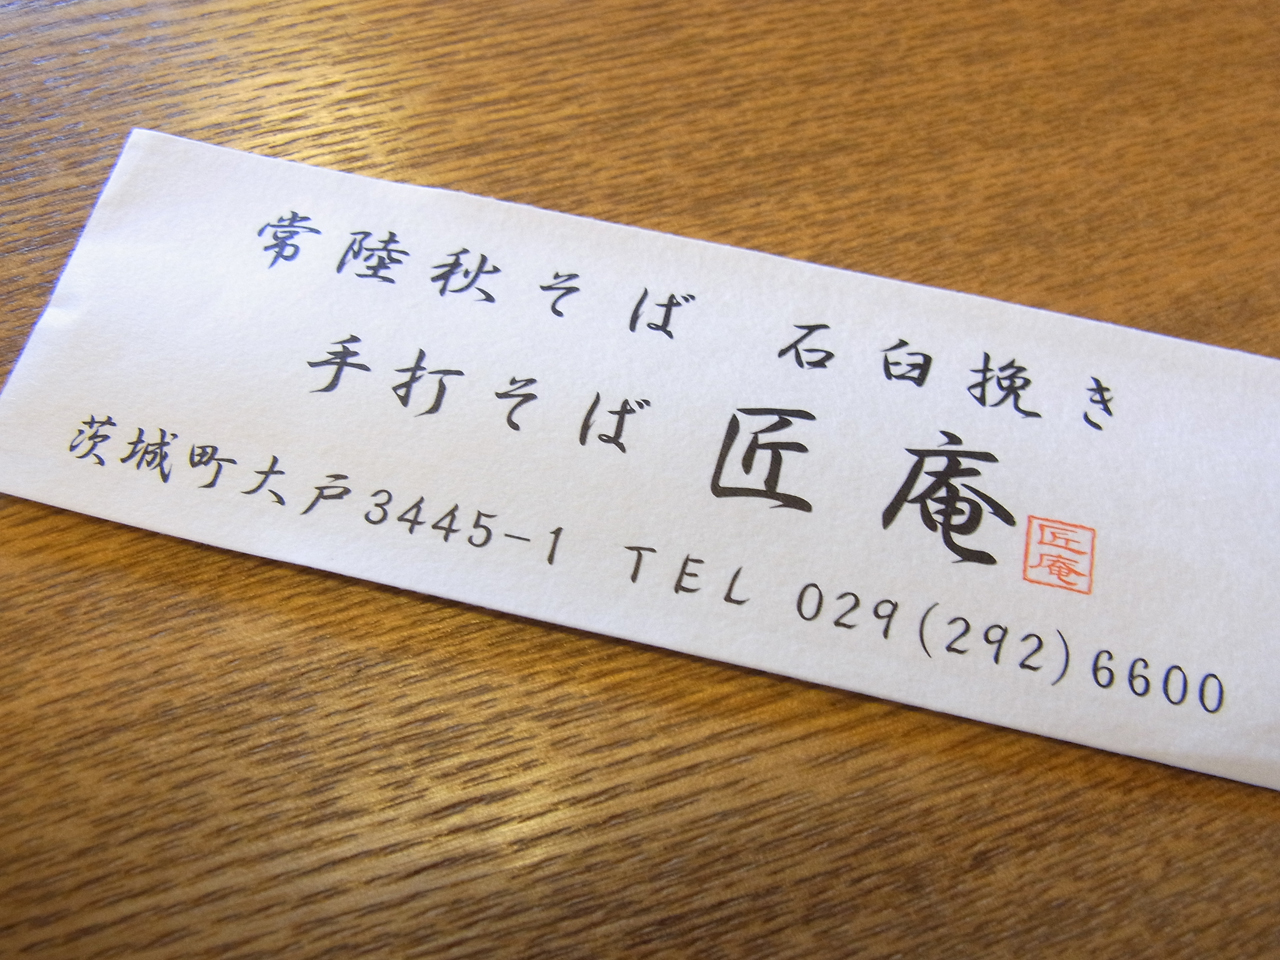 常陸秋そば 石臼挽き
手打そば 匠庵
匠庵
茨城町大戸3445-1 TEL 029(292)6600